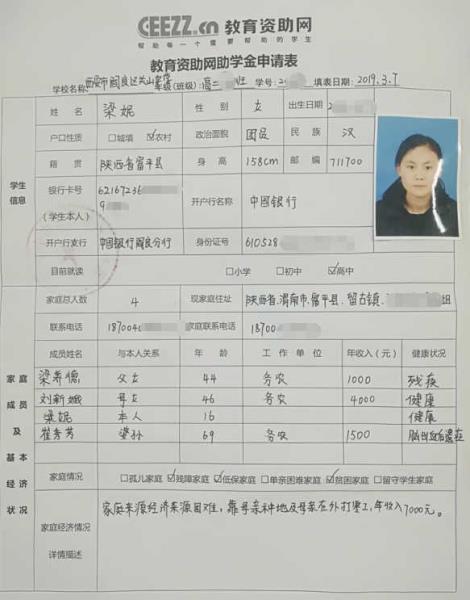 CEEZZ.cn 教育资助网
帮助每一个需要帮助的学生
教育资助网助学金申请表
学校名称: 西安市阎良区关山 年级(班级): 高二 班 学号: 2 填表日期: 2019.3.7
学生信息
姓名 梁妮 性别 女 出生日期 2
户口性质 □城填 ☑农村 政治面貌 团员 民族 汉
籍贯 陕西省富平县 身高 158cm 邮编 711700
银行卡号 (学生本人) 62167236 9 开户行名称 中国银行
开户行支行 中国银行阎良分行 身份证号 610528
目前就读 □小学 □初中 ☑高中
家庭成员及基本经济状况
家庭总人数 4 现家庭住址 陕西省,渭南市,富平县,留古镇, 组
联系电话 187004 家庭联系电话 18700
成员姓名 与本人关系 年龄 工作单位 年收入(元) 健康状况
梁养德 父女 44 务农 1000 残疾
刘新娥 母女 46 务农 4000 健康
梁妮 本人 16 健康
崔秀芳 婆孙 69 务农 1500 脑出血后遗症
家庭情况 □孤儿家庭 ☑残障家庭 ☑低保家庭 □单亲困难家庭 ☑贫困家庭 □留守学生家庭
家庭经济情况详情描述 家庭来源经济来源困难,靠母亲种地及母亲在外打零工,年收入7000元。